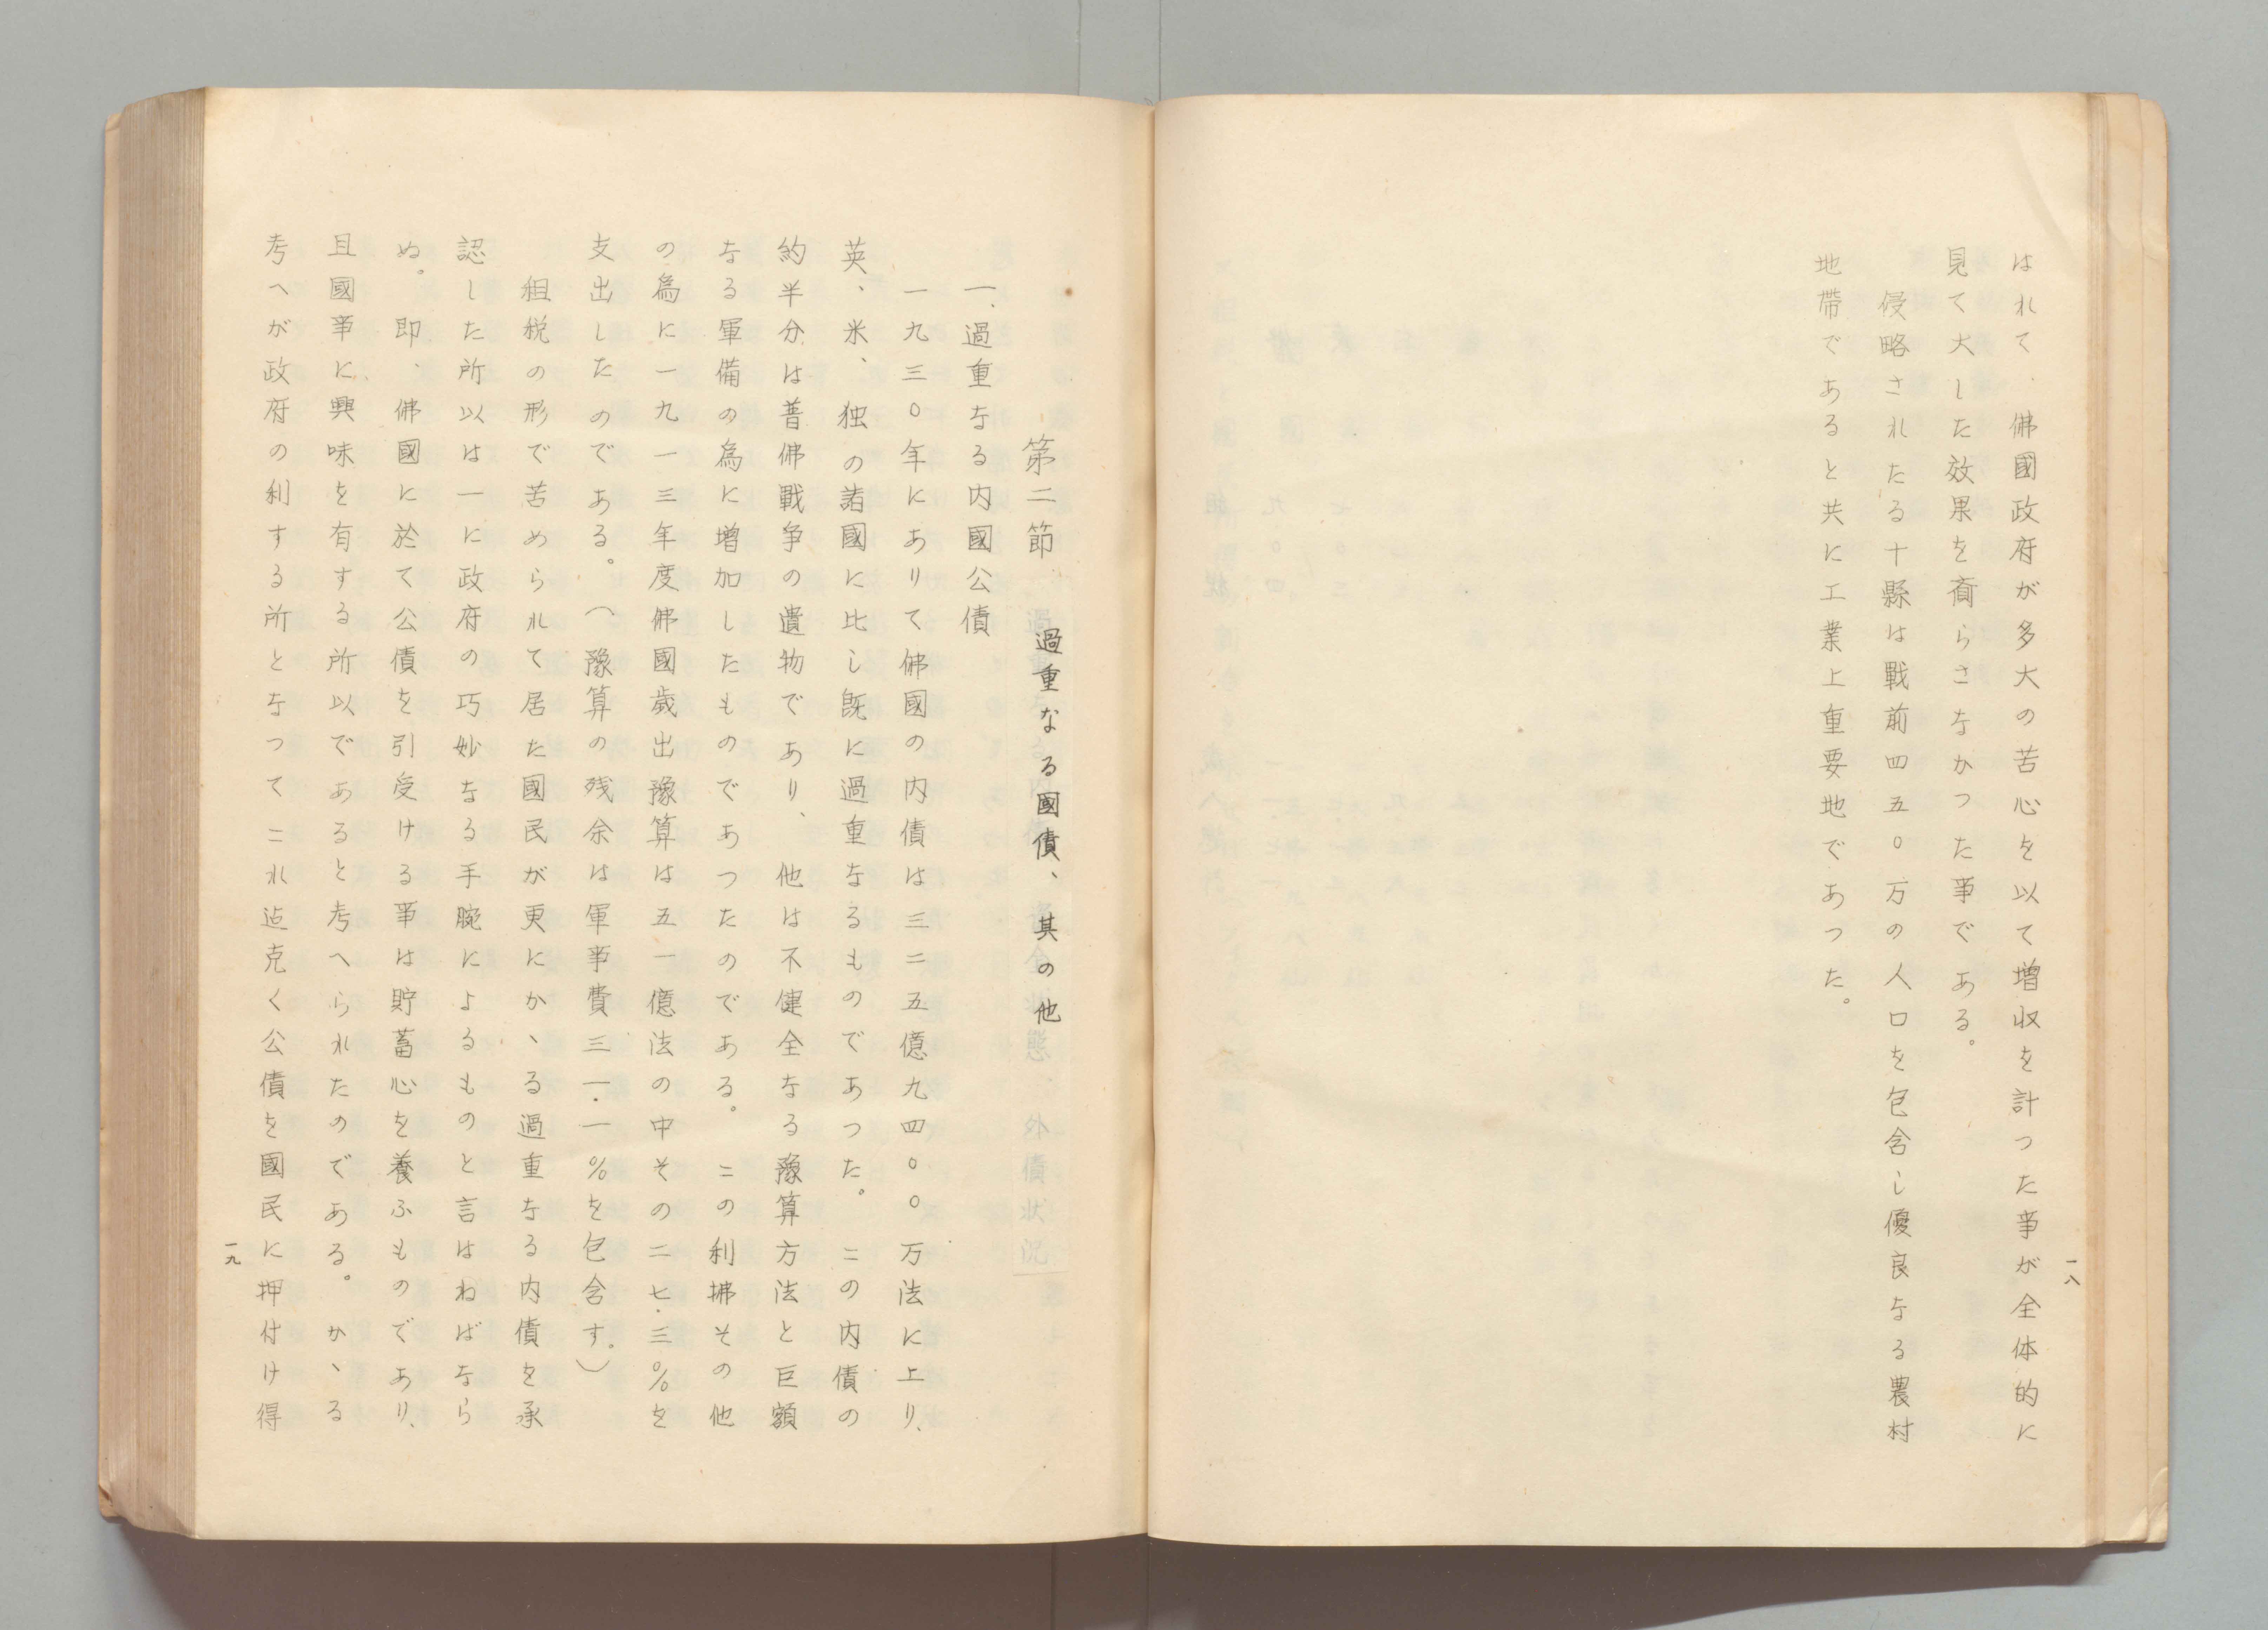 はれて、佛國政府が多大の苦心を以て増収を計つた事が全体的に
見て大した效果を齎らさなかつた事である。
侵略されたる十縣は戰前四五〇万の人口を包含し優良なる農村
地帶であると共に工業上重要地であつた。
一八
第二節 過重なる國債、其の他
一、過重なる内國公債
一九三〇年にありて佛國の内債は三二五億九四〇〇万法に上り、
英、米、独の諸國に比し既に過重なるものであつた。この内債の
約半分は普佛戰争の遺物であり、他は不健全なる豫算方法と巨額
なる軍備の為に増加したものであつたのである。この利拂その他
の為に一九一三年度佛國歳出豫算は五一億法の中その二七・三%を
支出したのである。(豫算の残余は軍事費三一・一%を包含す。)
租税の形で苦められて居た國民が更にかゝる過重なる内債を承
認した所以は一に政府の巧妙なる手腕によるものと言はねばなら
ぬ。即、佛國に於て公債を引受ける事は貯蓄心を養ふものであり、
且國事に興味を有する所以であると考へられたのである。かゝる
考へが政府の利する所となつてこれ迠克く公債を國民に押付け得
一九